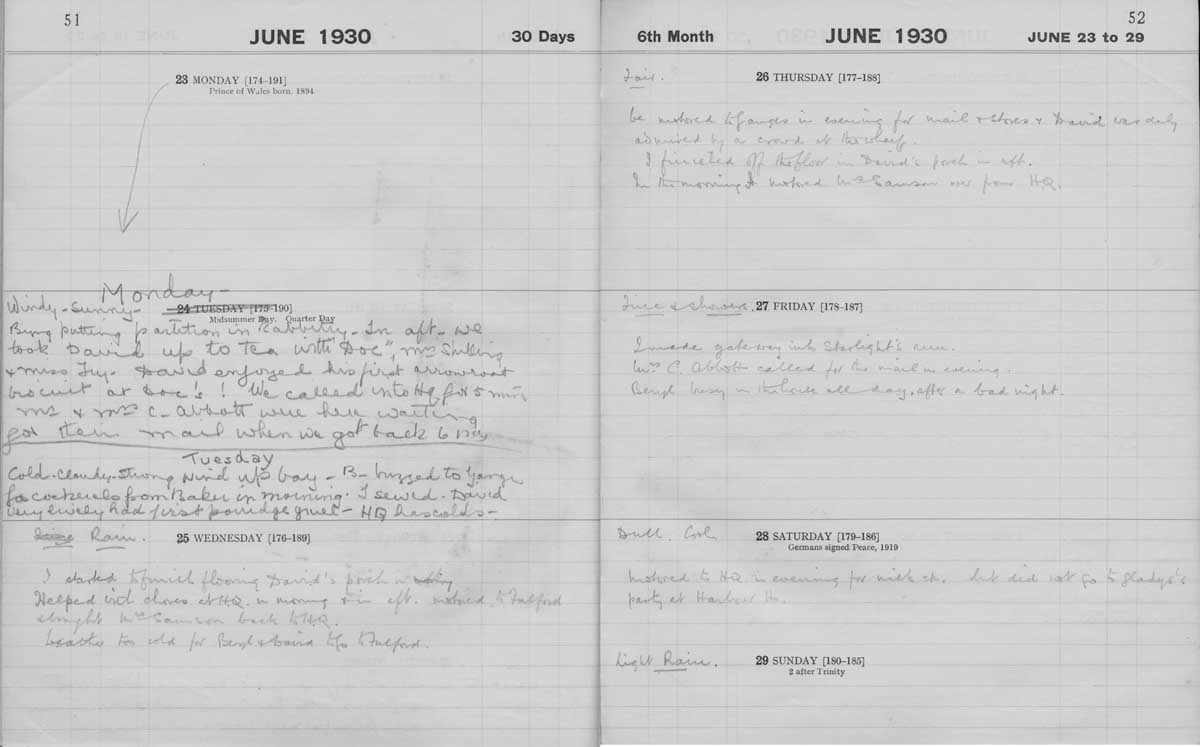 51
JUNE 1930
30 Days
23 MONDAY [174–191]
Prince of Wales born, 1894
Monday –
Windy - Sunny -
24 TUESDAY [175–190]
Midsummer Day. Quarter Day
putting partition in Rabbitry - In aft - we
took David up to tea with "Doc", Mrs
& Miss Fry. David enjoyed his first arrowroot
biscuit at Doc's! We called into HQ for 5 min.
Mr & Mrs C. Abbott were here waiting
for their mail when we got back 6
Tuesday
Cold - Cloudy - Strong wind up bay - B - buzzed to Ganges
for cockerels from Baker in morning. I sewed. David
very lively had first porridge gruel - HQ has colds -
Rain.
25 WEDNESDAY [176–189]
I started to finish flooring David's porch
Helped with chores at HQ. in morning & in aft. motored to Fulford
& brought Mrs Samson back to HQ.
Weather too cold for Beryl & David to go to Fulford.
52
6th Month
JUNE 1930
JUNE 23 to 29
Fair.
26 THURSDAY [177–188]
We motored to Ganges in evening for mail & stores & David was duly
admired by a crowd at the wharf.
I finished off the floor in David's porch in aft.
In the morning I motored Mrs Samson over from HQ.
Fine & showers.
27 FRIDAY [178–187]
I made gateway into Starlight's run.
Mrs C. Abbott called for the mail in evening.
Beryl busy in the house all day, after a bad night.
Dull. Cool
28 SATURDAY [179–186]
Germans signed Peace, 1919
Motored to HQ in evening for milk etc. but did not go to Gladys's
party at Harbour Ho.
Light Rain.
29 SUNDAY [180–185]
2 after Trinity